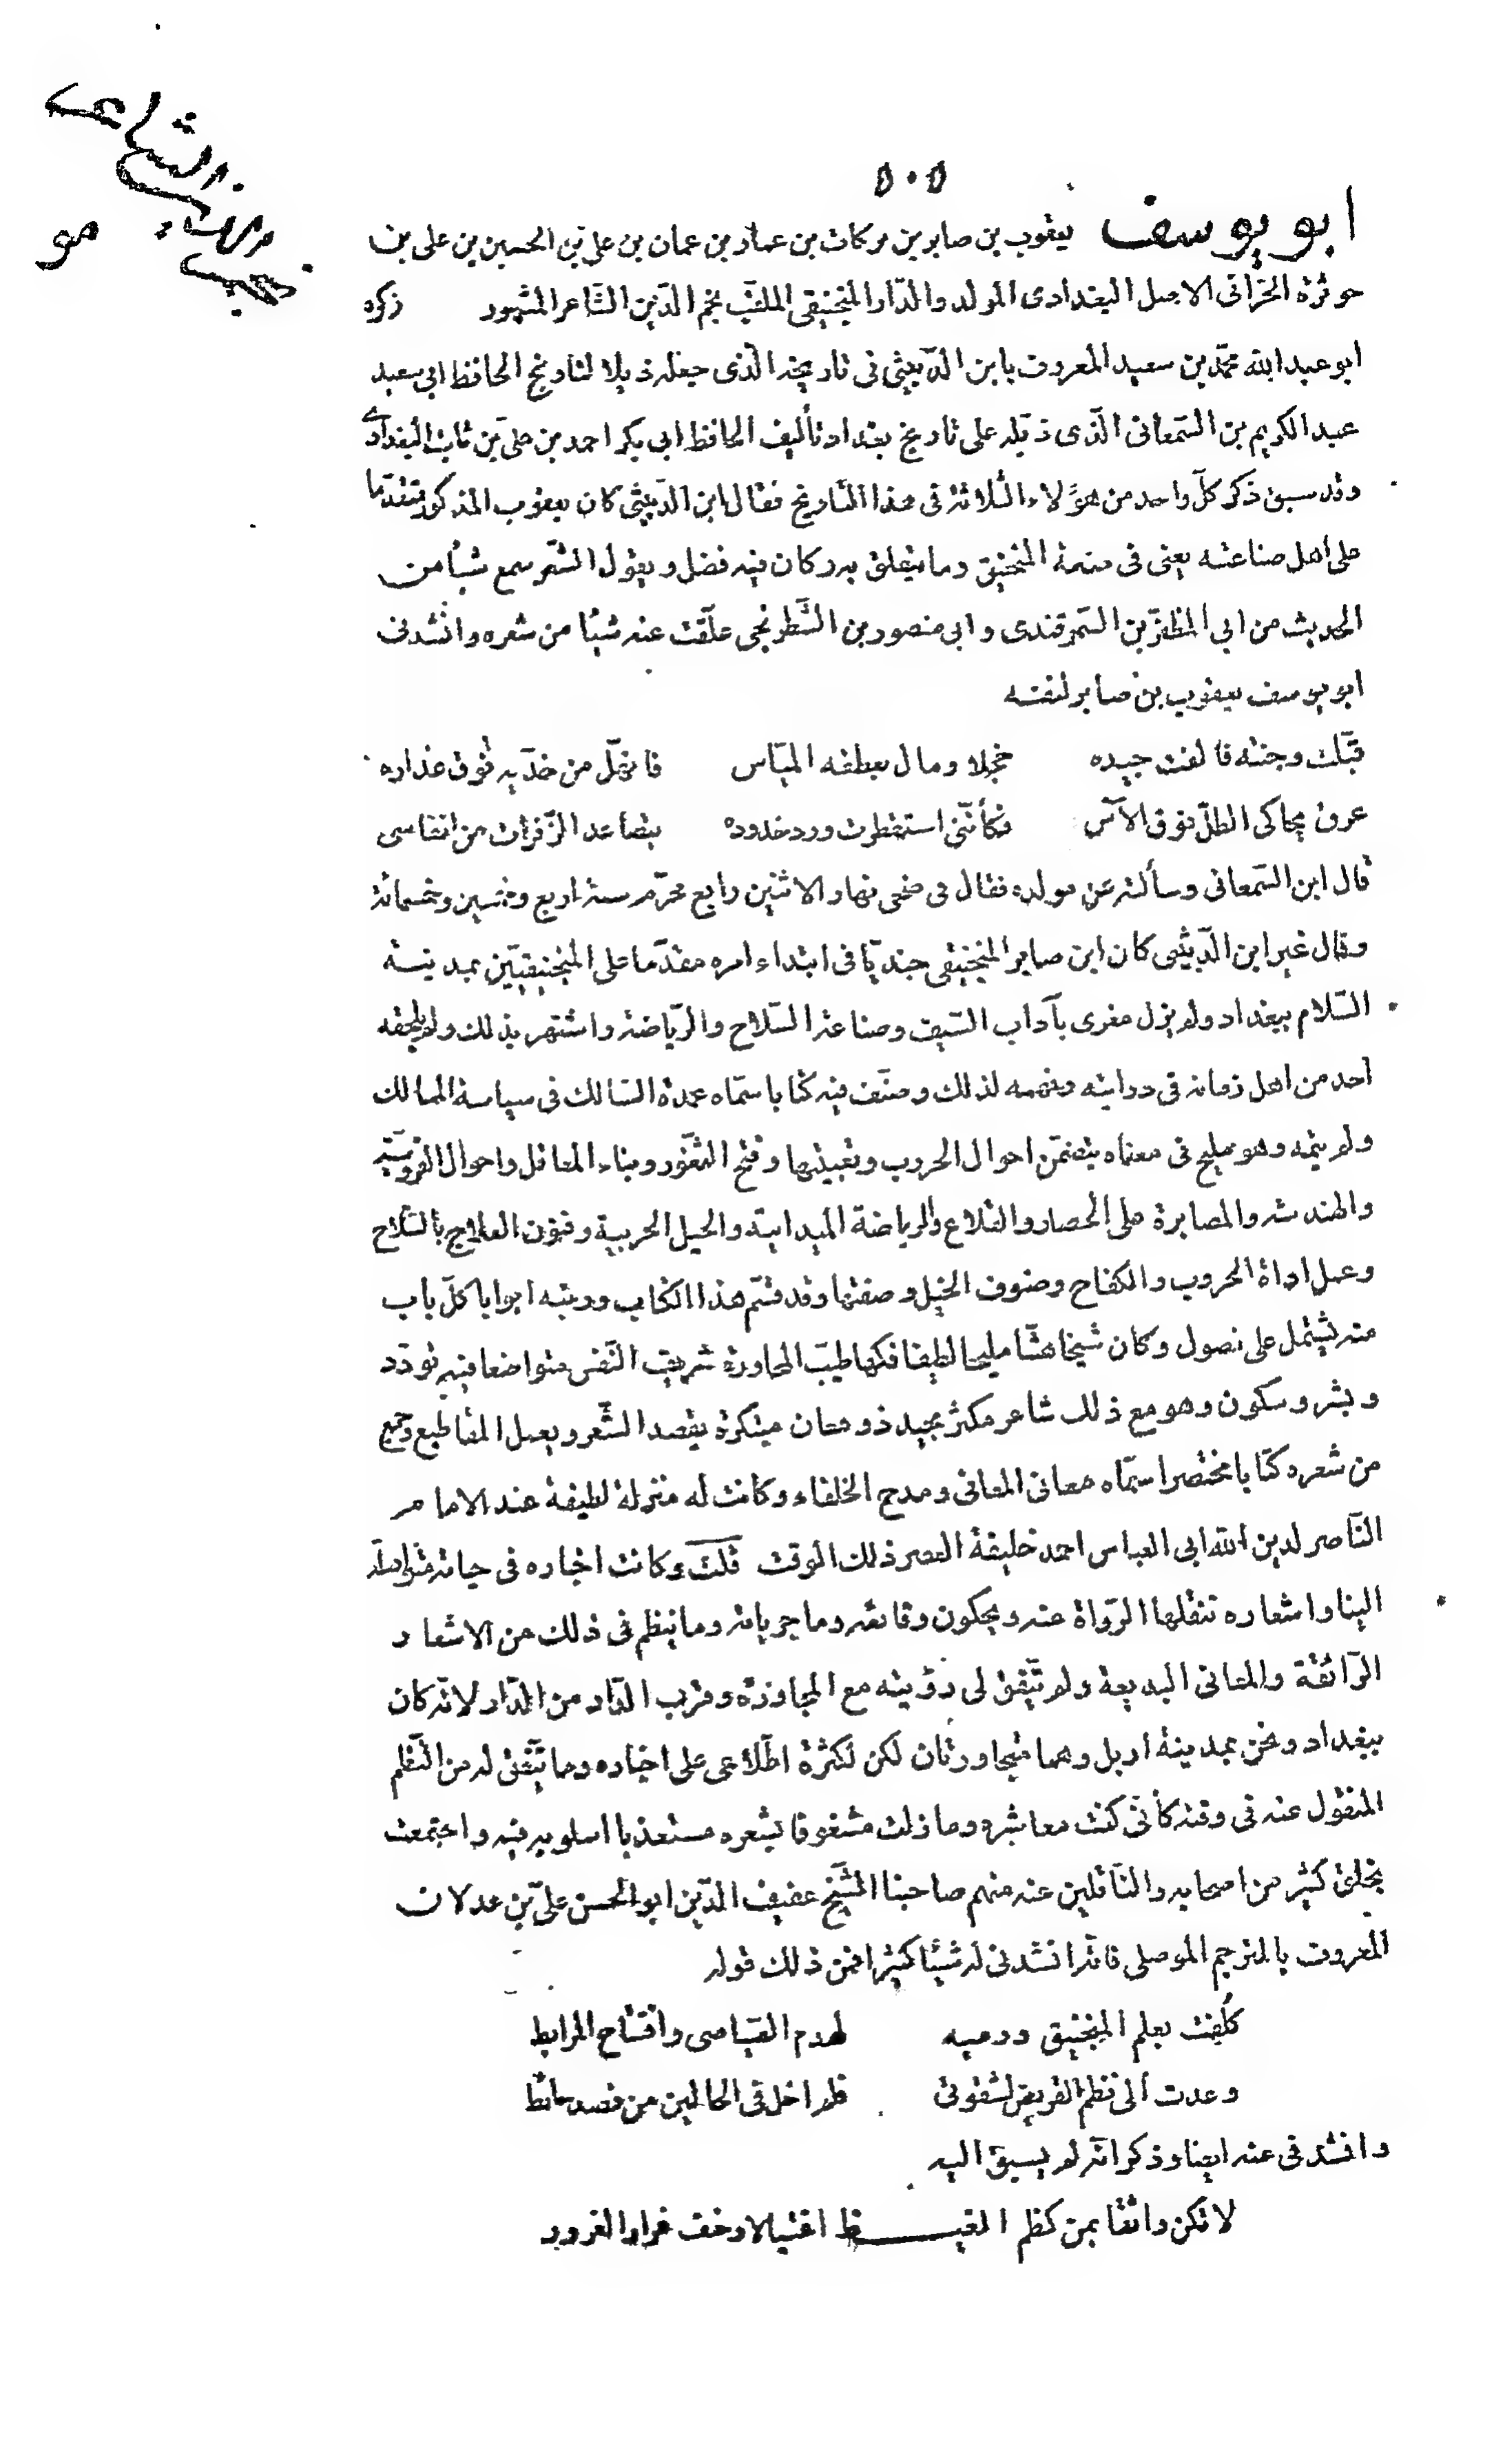 ٥٠٥
ابو يوسف يعقوب بن صابر بن بركات بن عمار بن عمان بن علي بن الحسين بن على بن
حوثرة الحرّانى الاصل البغدادى المولد والدّار المنجنيقى الملقّب نجم الدّين الشّاعر المشهور ذكره
ابو عبد الله محمّد بن سعيد المعروف بابن الدّبيثى فى تاريخه الّذى جعله ذيلا لتاريخ الحافظ ابى سعيد
عبد الكريم بن السّمعانى الّذى ذيّله على تاريخ بغداد تأليف الحافظ ابى بكر احمد بن علىّ بن ثابت البغدادى
وقد سبق ذكر كلّ واحد من هؤلاء الثلاثة فى هذا التاريخ فقال ابن الدّبيثى كان يعقوب المذكور متقدّما
على اهل صناعته يعنى فى صنعة المنجنيق وما يتعلق به وكان فيه فضل ويقول الشّعر سمع شيأ من
الحديث من ابى المظفّر بن السّمرقندى وابى منصور بن الشّطرنجى علّقت عنه شيئا من شعره وانشدنى
ابو يوسف يعقوب بن صابر لنفسه
قبّلت وجنته فالفت جيده خجلا ومال بعطفه الميّاس فانهلّ من خدّيه فوق عذاره
عرق يحاكى الطلّ فوق الآس فكأنّنى استقطرت ورد خدوده بتصاعد الزّفرات من انفاسى
قال ابن السّمعانى وسألته عن مولده فقال فى ضحى نهار الاثنين رابع محرّم سنة اربع وخمسين وخمسمائة
وقال غير ابن الدّبيثى كان ابن صابر المنجنيقى جنديّا فى ابتداء امره مقدّما على المنجنيقيّين بمدينة
السّلام ببغداد ولم يزل مغرى بآداب السّيف وصناعة السّلاح والرّياضة واشتهر بذلك ولم يلحقه
احد من اهل زمانه فى درايته وفهمه لذلك وصنّف فيه كتابا سمّاه عمدة السّالك فى سياسة الممالك
ولم يتمه وهو مليح فى معناه يتضمّن احوال الحروب وتعبيتها وفتح الثّغور وبناء المعاقل واحوال الفروسيّة
والهندسة والمصابرة على الحصار والقلاع والرياضة الميدانيّة والحيل الحربية وفنون العلاج بالسّلاح
وعمل اداة الحروب والكفاح وصنوف الخيل وصفتها وقد قسّم هذا الكتاب ورتبه ابوابا كلّ باب
منه يشتمل على فصول وكان شيخا هشّا مليحا لطيفا فكها طيّب المحاورة شريف النّفس متواضعا فيه تودّد
وبشر وسكون وهو مع ذلك شاعر مكثر مجيد ذو معان مبتكرة يقصد الشّعر ويعمل المقاطيع وجمع
من شعره كتابا مختصرا سمّاه معانى المعانى ومدح الخلفاء وكانت له منزلة لطيفة عند الامام
النّاصر لدين الله ابى العباس احمد خليفة العصر ذلك الوقت قلت وكانت اخباره فى حياته متواصلة
الينا واشعاره تنقلها الرّواة عنه ويحكون وقائعه وماجرياته وما ينظم فى ذلك من الاشعار
الرّائقة والمعانى البديعة ولم يتّفق لى رؤيته مع المجاورة وقرب الدّار من الدّار لانّه كان
ببغداد ونحن بمدينة اربل وهما متجاورتان لكن لكثرة اطّلاعى على اخباره وما يتّفق له من النّظم
المنقول عنه فى وقته كأنّى كنت معاشره وما زلت مشغوفا بشعره مستعذبا اسلوبه فيه واجتمعت
بخلق كثير من اصحابه والنّاقلين عنه منهم صاحبنا الشّيخ عفيف الدّين ابو الحسن علىّ بن عدلان
المعروف بالمترجم الموصلى فانّه انشدنى له شيئا كثيرا فمن ذلك قوله
كلفت بعلم المنجنيق ورميه لهدم الصّياصى وافتتاح المرابط
وعدت الى نظم القريض لشقوتى فلم اخل فى الحالين من قصد حائط
وانشدنى عنه ايضا وذكر انّه لم يسبق اليه
لا تكن واثقا بمن كظم الغيـظ اغتيالا وخف غرار الغرور
نجيب الدين الشاعر
هو